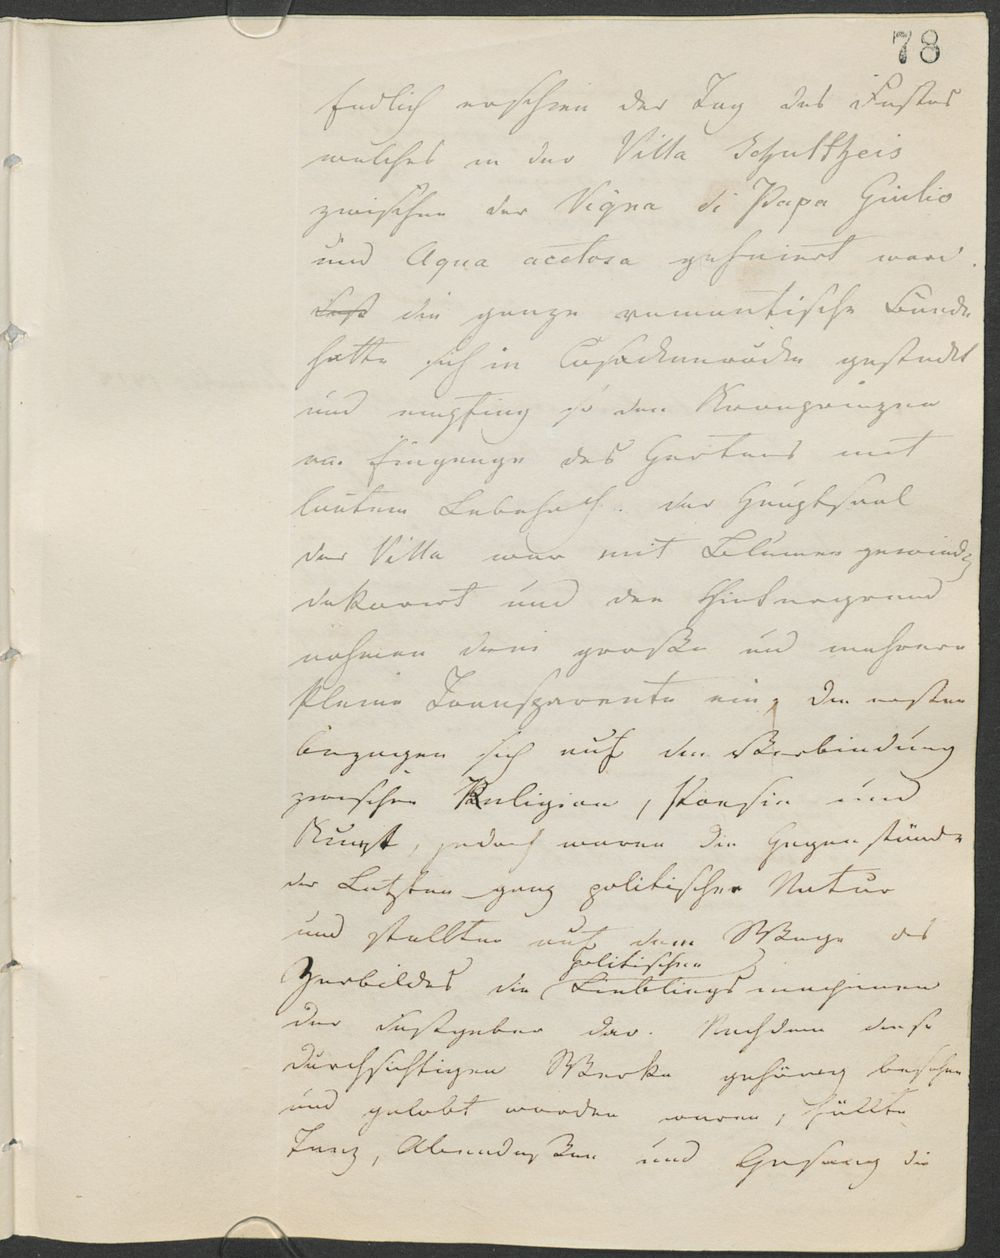 78
Endlich erschien der Tag des Festes
welches in der Villa Schultheis
zwischen der Vigna di Papa Giulio
und Aqua acetosa gefeiert ward.
die ganze romantische Bande
hatte sich in gesteckt
und empfing so den Kronprinzen
am Eingange des Gartens mit
lautem Lebehoch. Der Hauptsaal
der Villa war mit Blumengewinden
dekorirt und den Hintergrund
nahmen drei große und mehrere
kleine Transparente ein, die ersten
bezogen sich auf die Verbindung
zwischen Religion, Poesie und
Kunst, jedoch waren die Gegenstände
der Letzten ganz politischer Natur
und stellten auf dem Wege des
politischen
Zerbildes die Lieblings meinungen
der Festgeber dar. Nachdem diese
durchsichtigen Werke gehörig besehen
und gelobt worden waren, füllte
Tanz, Abendessen und Gesang die